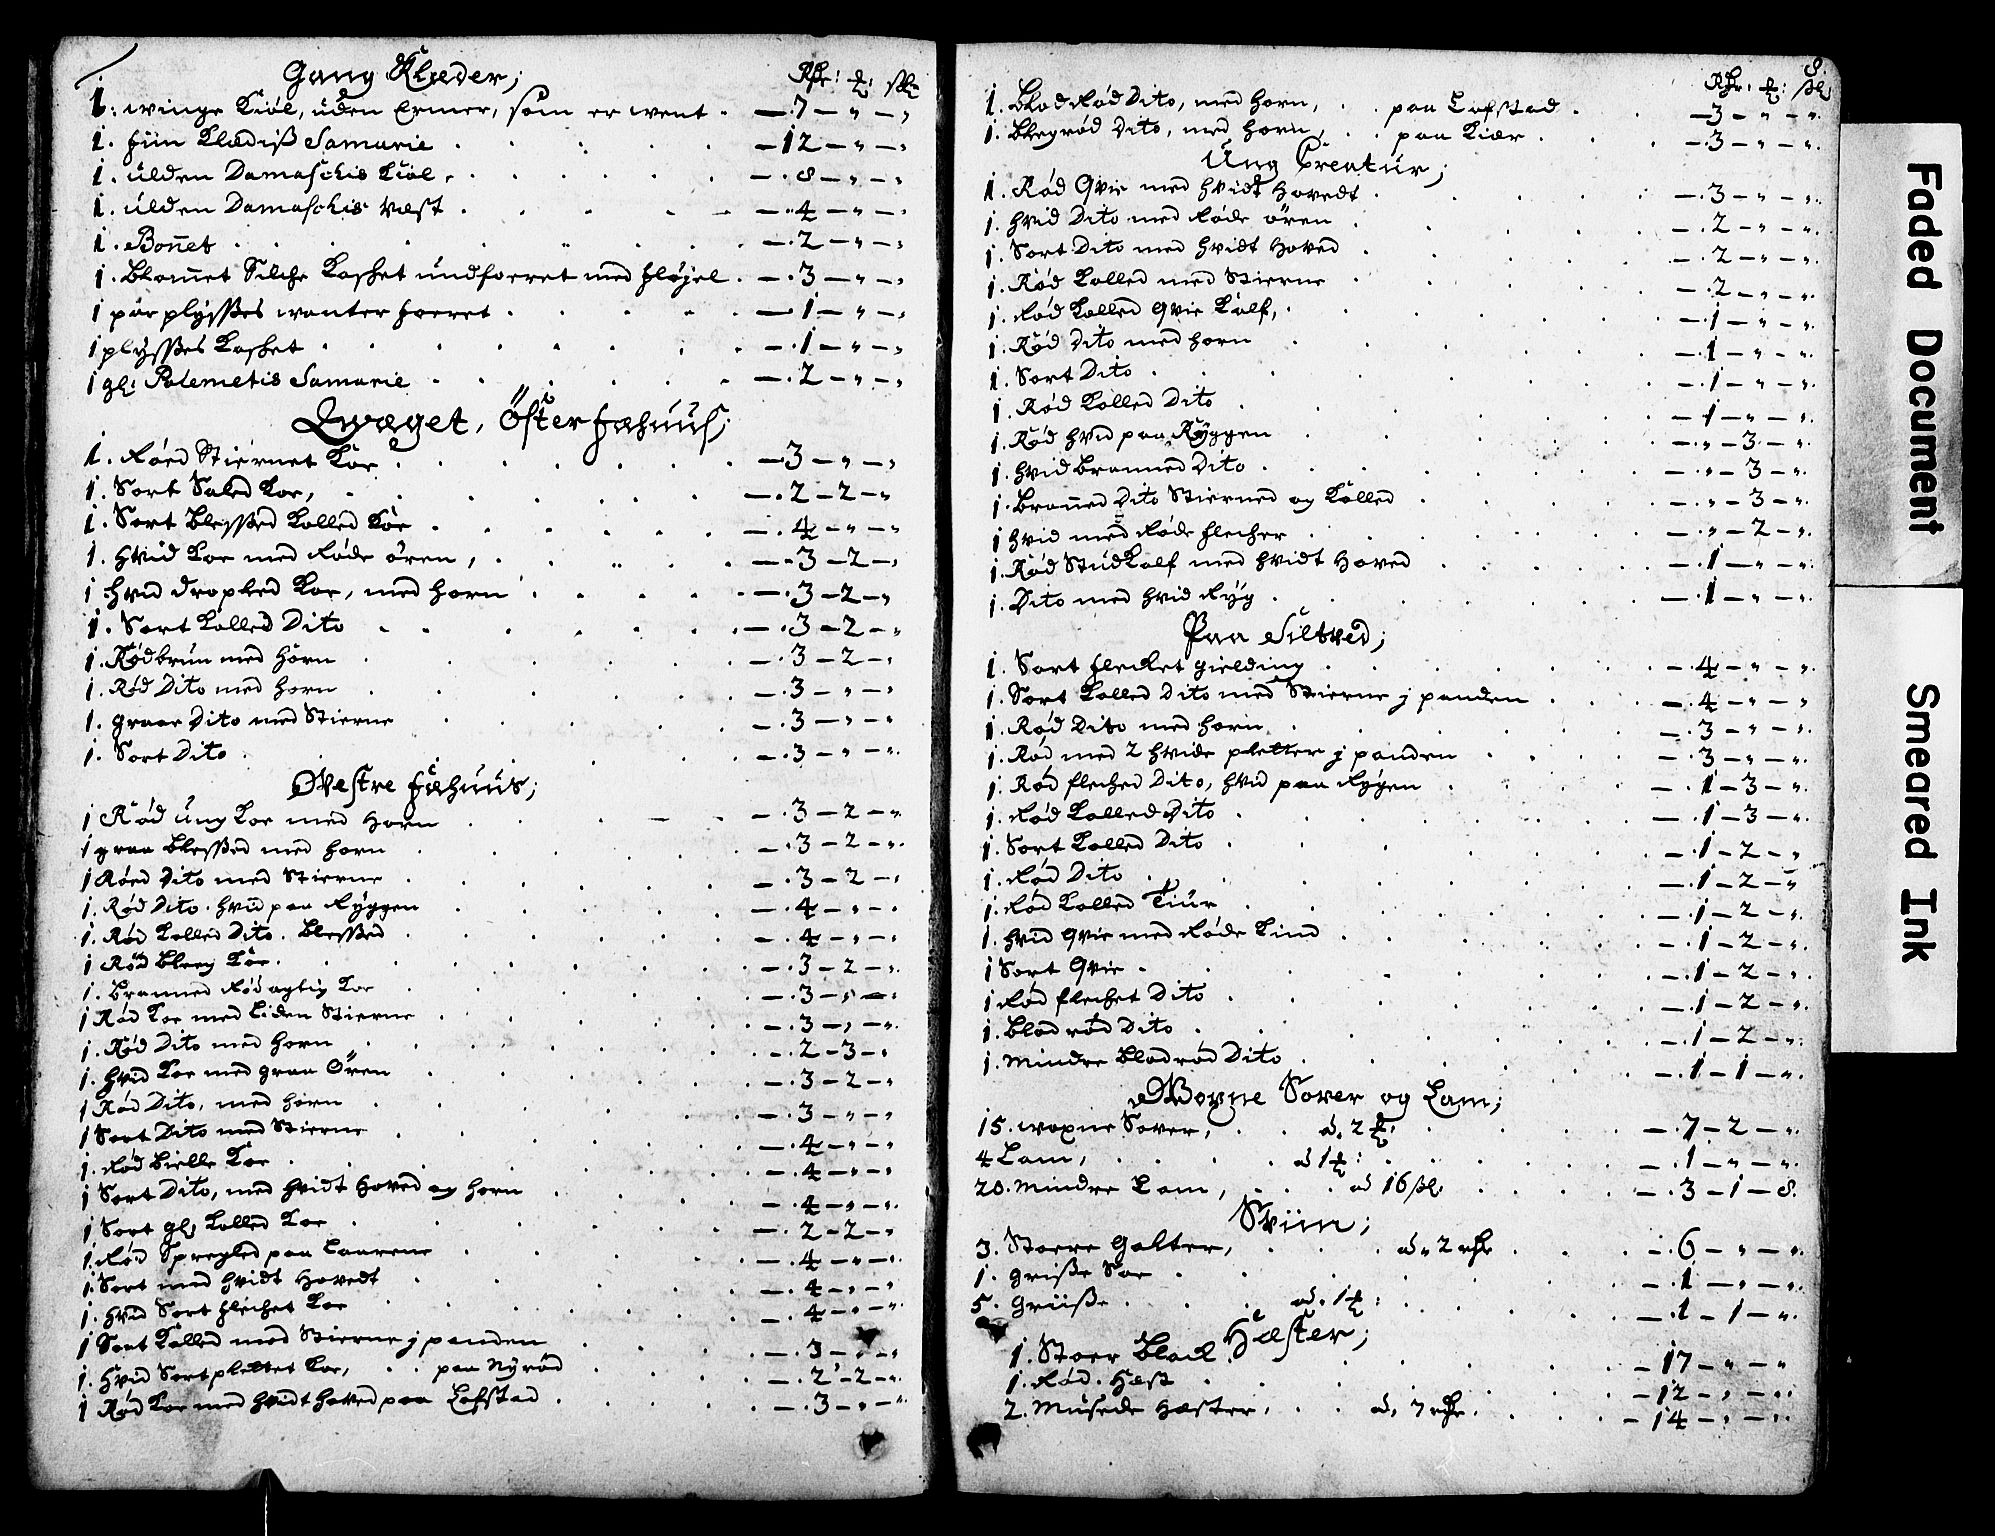 Gang Klæder; Rdr: ℔: sk:
1. winge Kiol, uden Ermer, som er went — 7 — " — "
1. fiin Klædiß Samarie — 12 — " — "
1. ulden Damaschis Kiol — 8 — " — "
1. ulden Damaschis Væst — 4 — " — "
1. Bonnet — 2 — " — "
1. Blommet Silche Kasket undfoeret med fløjel — 3 — " — "
1 par plyssßes wanter foeret — 1 — " — "
1 plyssßes Kasket — 1 — " — "
1 gl: Polemetis Samarie — 2 — " — "
Qvæget, Öster fæhuus;
1. Röed Stiernet Koe — 3 — " — "
1. Sort Saled Koe, — 2 — 2 — "
1. Sort Blessßed Kolled Koe — 4 — " — "
1. Hvid Koe med Røde ören, — 3 — 2 — "
1 Hvid dropled Koe, med horn — 3 — 2 — "
1. Sort Kolled Dito — 3 — 2 — "
1. Rødbrun med Horn — 3 — 2 — "
1. Rød Dito med Horn — 3 — " — "
1. graae Dito med Stierne — 3 — " — "
1. Sort Dito — 3 — " — "
Westre fæhuus;
1 Rød ung Koe med Horn — 3 — 2 — "
1 graa Blessßed med horn — 3 — 2 — "
1 Röed Dito med Stierne — 3 — 2 — "
1. Rød Dito hvid paa Ryggen — 4 — " — "
1. Rød Kolled Dito. Blessßed — 4 — " — "
1 Rød Bleeg Koe — 3 — 2 — "
1. Branned Rødagtig Koe — 3 — " — "
1 Rød Koe med Liden Stierne — 3 — " — "
1. Rød Dito med Horn — 2 — 3 — "
1. Hvid Koe med graa Ören — 3 — 2 — "
1 Rød Dito, med horn — 3 — " — "
1 Sort Dito med Stierne — 4 — " — "
1. Rød Bielle Koe — 4 — " — "
1 Sort Dito, med Hvidt Hoved og horn — 4 — " — "
1 Sort gl: Kolled Koe — 2 — 2 — "
1. Rød Spregled paa Laarene — 4 — " — "
1. Sort med Hvidt Hovedt — 4 — " — "
1. Hvid Sort flechet Koe — 4 — " — "
1 Sort Kolled med Stierne j panden — 3 — " — "
1. Hvid Sort plettet Koe, paa Nyrød — 2 — 2 — "
1 Rød Koe med Hvidt hoved paa Lofstad — 3 — " — "
8.
Rdr: ℔: sk:
1. Blodrød Dito, med Horn, paa Lofstad — 3 — " — "
1. Blegrød Dito, med Horn, paa Kiær — 3 — " — "
Ung Creatur;
1. Rød Qvie med Hvidt Hovedt — 3 — " — "
1. Hvid Dito med Røde ören — 2 — " — "
1. Sort Dito med Hvidt Hoved — 2 — " — "
1. Rød Kolled med Stierne — 2 — " — "
1. Rød Kolled Qvie Kalf, — 1 — " — "
1. Rød Dito med Horn — 1 — " — "
1. Sort Dito — 1 — " — "
1. Rød Kolled Dito — 1 — " — "
1. Rød Hvid paa Ryggen — " — 3 — "
1. Hvid Branned Dito — " — 3 — "
1. Branned Dito Stierned og Kolled — " — 3 — "
1 Hvid med Røde flecher — " — 2 — "
1. Rød Stud Kalf med Hvidt Hoved — 1 — " — "
1. Dito med Hvid Ryg — 1 — " — "
Paa Siltved;
1. Sort flecket gielding — 4 — " — "
1. Sort Kolled Dito med Stierne j panden — 4 — " — "
1. Rød Dito med Horn — 3 — " — "
1. Rød med 2 Hvide pletter j panden — 3 — " — "
1. Rød fleched Dito, Hvid paa Rygen — 1 — 3 — "
1. Rød Kolled Dito — 1 — 3 — "
1. Sort Kolled Dito — 1 — 2 — "
1. Rød Dito — 1 — 2 — "
1. Rød Kolled Tiur — 1 — 2 — "
1. Hvid Qvie med Røde Kind — 1 — 2 — "
1 Sort Qvie — 1 — 2 — "
1 Rød flechet Dito — 1 — 2 — "
1. Blod rød Dito — 1 — 2 — "
1. Mindre Blodrød Dito — 1 — 1 — "
Woxne Sover og Lam;
15. woxne Sover, ad. 2 ℔: — 7 — 2 — "
4 Lam, ad 1 ℔: — 1 — " — "
20. Mindre Lam, ad 16 sk: — 3 — 1 — 8.
Sviin;
3. Stoere Galter, ad. 2 Rdr — 6 — " — "
1. Griisße Soe — 1 — " — "
5. Griisße ad. 1 ℔: — 1 — 1 — "
Hæster;
1. Stoer Black — 17 — " — "
1. Rød Hæst — 12 — " — "
2. Musede Hæster, ad, 7 Rdr — 14 — " — "
Faded Document
Smeared Ink